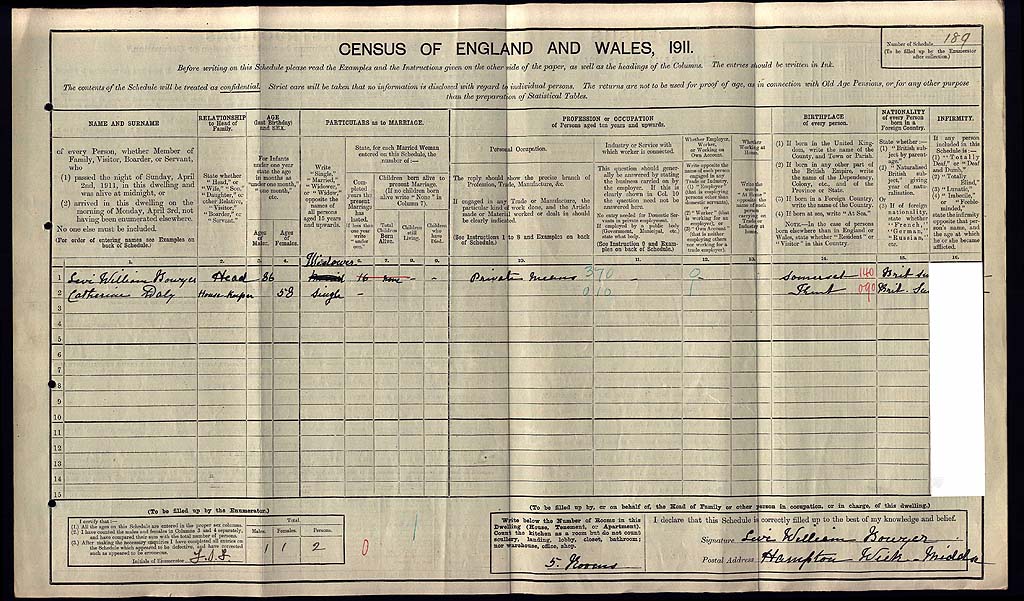 189
Number of Schedule
(To be filled up by the Enumerator
after collection.)
CENSUS OF ENGLAND AND WALES, 1911.
Before writing on this Schedule please read the Examples and the Instructions given on the other side of the paper, as well as the headings of the Columns. The entries should be written in Ink.
The contents of the Schedule will be treated as confidential. Strict care will be taken that no information is disclosed with regard to individual persons. The returns are not to be used for proof of age, as in connection with Old Age Pensions, or for any other purpose
than the preparation of Statistical Tables.
NAME AND SURNAME
of every Person, whether Member of
Family, Visitor, Boarder, or Servant,
who
(1) passed the night of Sunday, April
2nd, 1911, in this dwelling and
was alive at midnight, or
(2) arrived in this dwelling on the
morning of Monday, April 3rd, not
having been enumerated elsewhere.
No one else must be included.
(For order of entering names see Examples on
back of Schedule.)
RELATIONSHIP
to Head of
Family.
State whether
"Head," or
"Wife," "Son,"
"Daughter," or
other Relative,
"Visitor,"
"Boarder," or
"Servant."
AGE
(last Birthday)
and SEX.
For Infants
under one year
state the age
in months as
"under one month,"
"one month,"
etc.
Ages
of
Males.
Ages
of
Females.
PARTICULARS as to MARRIAGE.
Write
"Single,"
"Married,"
"Widower,"
or "Widow,"
opposite the
names of
all persons
aged 15 years
and upwards.
State, for each Married Woman
entered on this Schedule, the
number of:—
Children born alive to
present Marriage.
(If no children born
alive write "None" in
Column 7).
Total
Children
Born
Alive.
Children
still
Living.
Children
who
have
Died.
PROFESSION or OCCUPATION
of Persons aged ten years and upwards.
Personal Occupation.
The reply should show the precise branch of
Profession, Trade, Manufacture, &c.
If engaged in any Trade or Manufacture, the
particular kind of work done, and the Article
made or Material worked or dealt in should
be clearly indicated.
(See Instructions 1 to 8 and Examples on back
of Schedule.)
Industry or Service with
which worker is connected.
This question should gener-
ally be answered by stating
the business carried on by
the employer. If this is
clearly shown in Col. 10
the question need not be
answered here.
No entry needed for Domestic Ser-
vants in private employment.
If employed by a public body
(Government, Municipal, etc.)
state what body.
(See Instruction 9 and Exam-
ples on back of Schedule.)
Whether Employer,
Worker, or Working on
Own Account.
Whether
Working at
Home.
BIRTHPLACE
of every person.
(1) If born in the United King-
dom, write the name of the
County, and Town or Parish.
(2) If born in any other part of
the British Empire, write
the name of the Dependency,
Colony, etc., and of the
Province or State.
(3) If born in a Foreign Country,
write the name of the Country.
(4) If born at sea, write "At Sea."
NOTE.—In the case of persons
born elsewhere than in England or
Wales, state whether "Resident" or
"Visitor" in this Country.
NATIONALITY
of every Person
born in a
Foreign Country.
State whether:—
(1) "British sub-
ject by parent-
age."
(2) "Naturalised
British sub-
ject," giving
year of natu-
ralisation.
(3) If of foreign
nationality,
state whether
"French,"
"German,"
"Russian,"
etc.
INFIRMITY.
If any person
included in this
Schedule is:—
(1) "Totally
Deaf," or "Deaf
and Dumb,"
(2) "Totally
Blind,"
(3) "Lunatic,"
(4) "Imbecile,"
or "Feeble-
minded,"
state the infirmity
opposite that per-
son's name, and
the age at which
he or she became
afflicted.
1. 2. 3. 4. 5. 6. 7. 8. 9. 10. 11. 12. 13. 14. 15. 16.
Widower
1 Levi William Bowyer Head 86 Married 16 Private Means 370 0 Somerset 140 Brit
2 Catherine Daly House-Keeper 58 Single – 010 1 090 Brit.
3
4
5
6
7
8
9
10
11
12
13
14
15
(To be filled up by the Enumerator.)
I certify that:—
(1.) All the ages on this Schedule are entered in the proper sex columns.
(2.) I have counted the males and females in Columns 3 and 4 separately,
and have compared their sum with the total number of persons.
(3.) After making the necessary enquiries I have completed all entries on
the Schedule which appeared to be defective, and have corrected
such as appeared to be erroneous.
Initials of Enumerator
Total.
Males. Females. Persons.
1 1 2
0
(To be filled up by, or on behalf of, the Head of Family or other person in occupation, or in charge, of this dwelling.)
Write below the Number of Rooms in this
Dwelling (House, Tenement, or Apartment).
Count the kitchen as a room but do not count
scullery, landing, lobby, closet, bathroom;
nor warehouse, office, shop.
5. Rooms
I declare that this Schedule is correctly filled up to the best of my knowledge and belief.
Signature Levi William Bowyer
Postal Address Hampton Wick - Middx